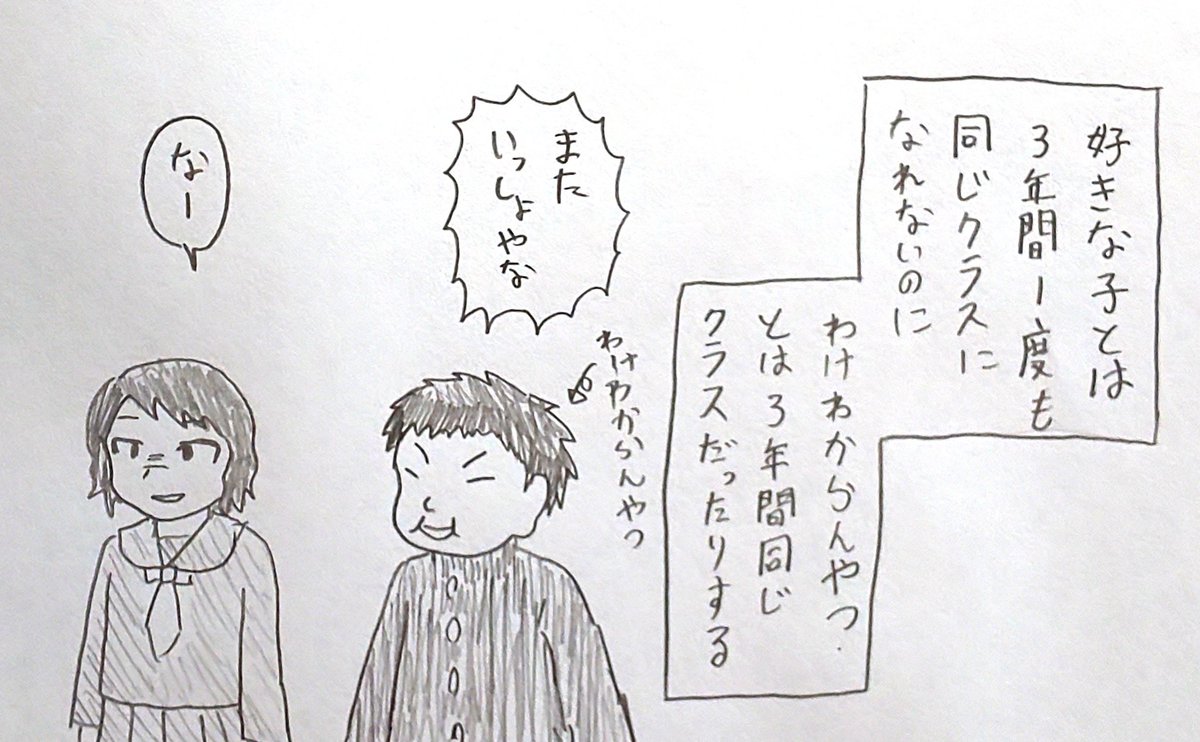 好きな子とは
3年間1度も
同じクラスに
なれないのに
わけわからんやつ
とは3年間同じ
クラスだったりする
また
いっしょやな
わけわからんやつ
なー